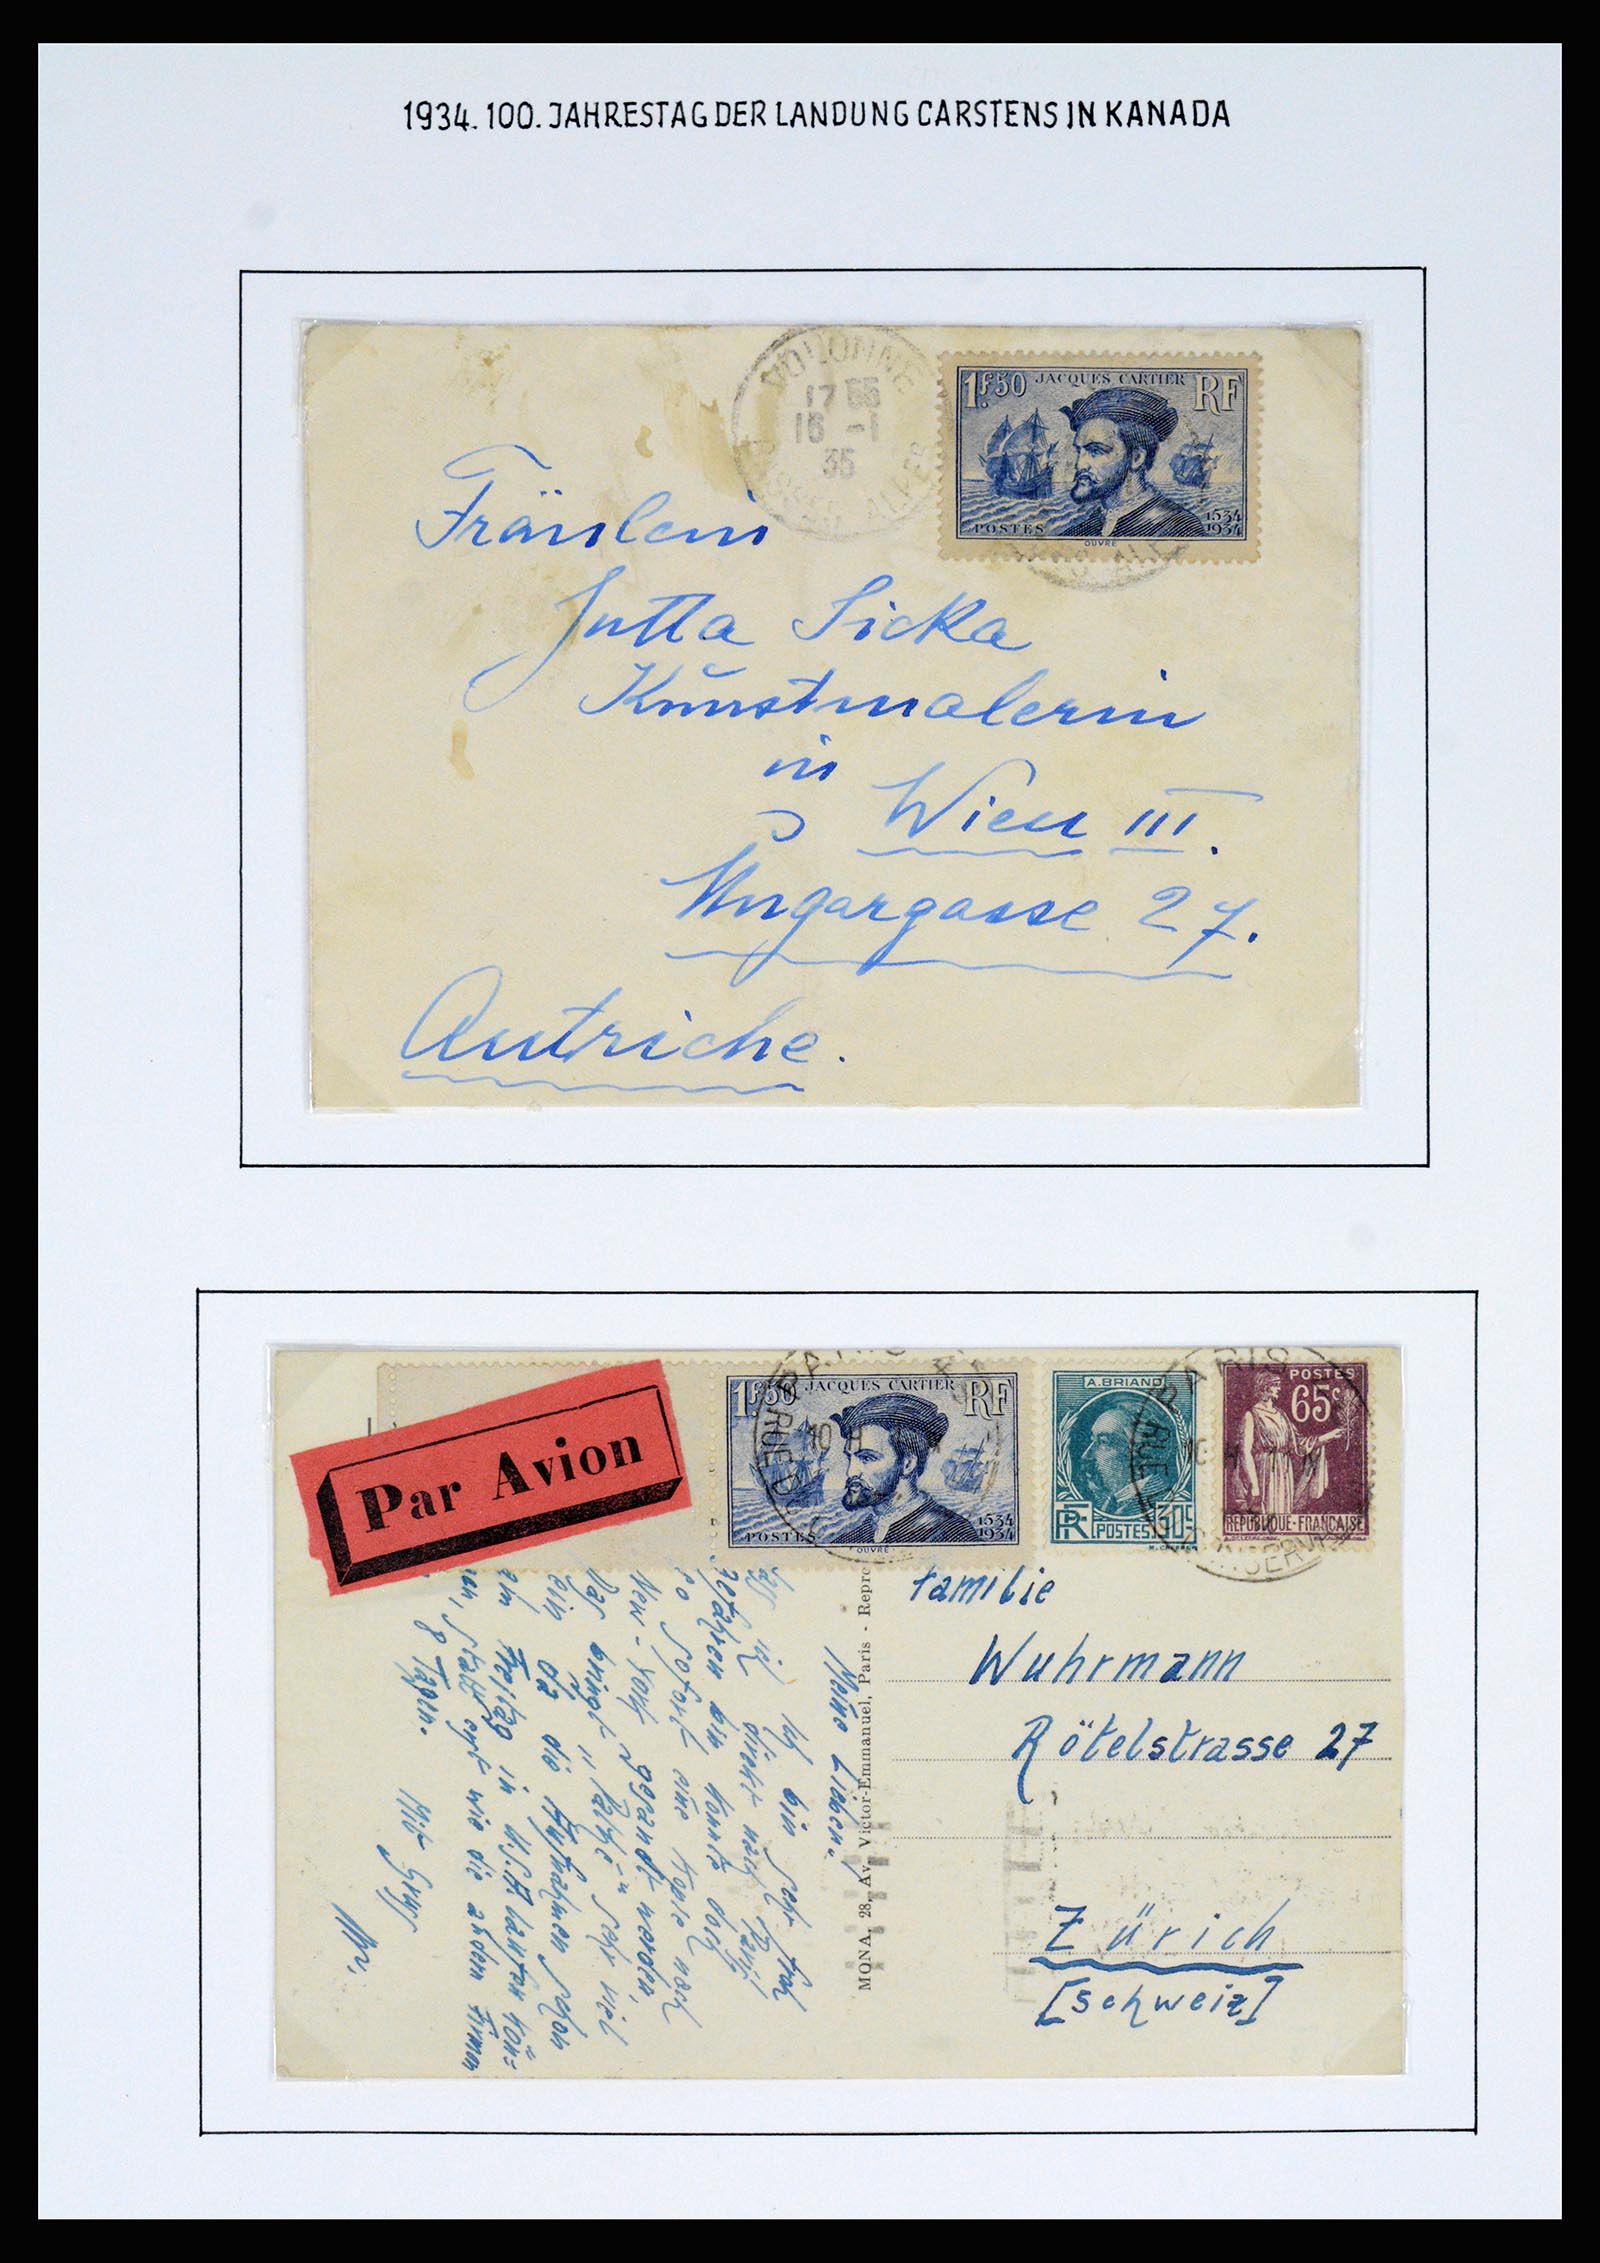 1934. 100. JAHRESTAG DER LANDUNG CARSTENS IN KANADA
VOLONNE
17 55
16 -1
35
BASSES ALPES
1.F50 JACQUES CARTIER RF
POSTES
1534
1934
OUVRÉ
Fräulein
Jutta Sicka
Kunstmalerin
in
Wien III.
Ungargasse 27.
Autriche.
Par Avion
1.F50 JACQUES CARTIER RF
POSTES
1534
1934
OUVRÉ
A. BRIAND
RF POSTES 30c
POSTES
65c
REPUBLIQUE-FRANÇAISE
PARIS
familie
Wuhrmann
Rötelstrasse 27
Zürich
[Schweiz]
MONA, 28, Av. Victor-Emmanuel, Paris - Repro
Meine Lieben.
Ich bin sehr froh
ich direkt nach Paris
gefahren bin konnte doch
so sofort eine Kopie nach
New-York gesandt werden
Das bringt sehr viel
ein da die Aufnahmen schon
am Freitag in U.S.A. laufen kön=
nen, statt erst wie die andern Firmen
8 Tagen.
Mit Gruss